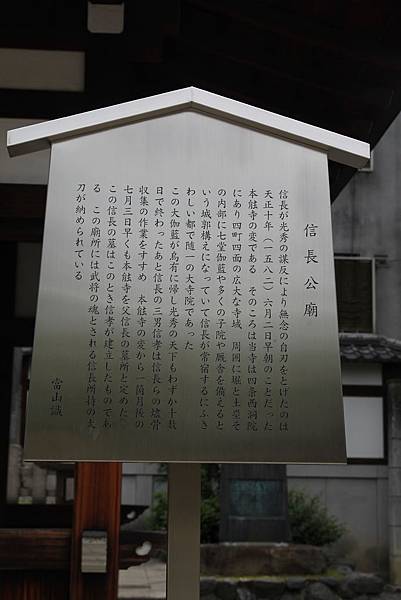 信長公廟
信長が光秀の謀反により無念の自刃をとげたのは
天正十年（一五八二）六月二日早朝のことだった
本能寺の変である　そのころは当寺は四条西洞院
にあり四町四面の広大な寺域　周囲に堀と土塁そ
の内部に七堂伽藍や多くの子院や厩舎を備えると
いう城郭構えになっていて信長が常宿するにふさ
わしい都で随一の大寺院であった
この大伽藍が烏有に帰し光秀の天下もわずか十数
日で終わったあと信長の三男信孝は信長らの遺骨
収集の作業をすすめ　本能寺の変から一箇月後の
七月三日早くも本能寺を父信長の墓所と定めた
この信長の墓はこのとき信孝が建立したものであ
る　この廟所には武将の魂とされる信長所持の太
刀が納められている
当山識